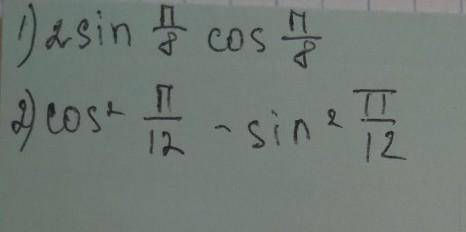 1) 2 sin π/8 cos π/8
2) cos² π/12 - sin² π/12